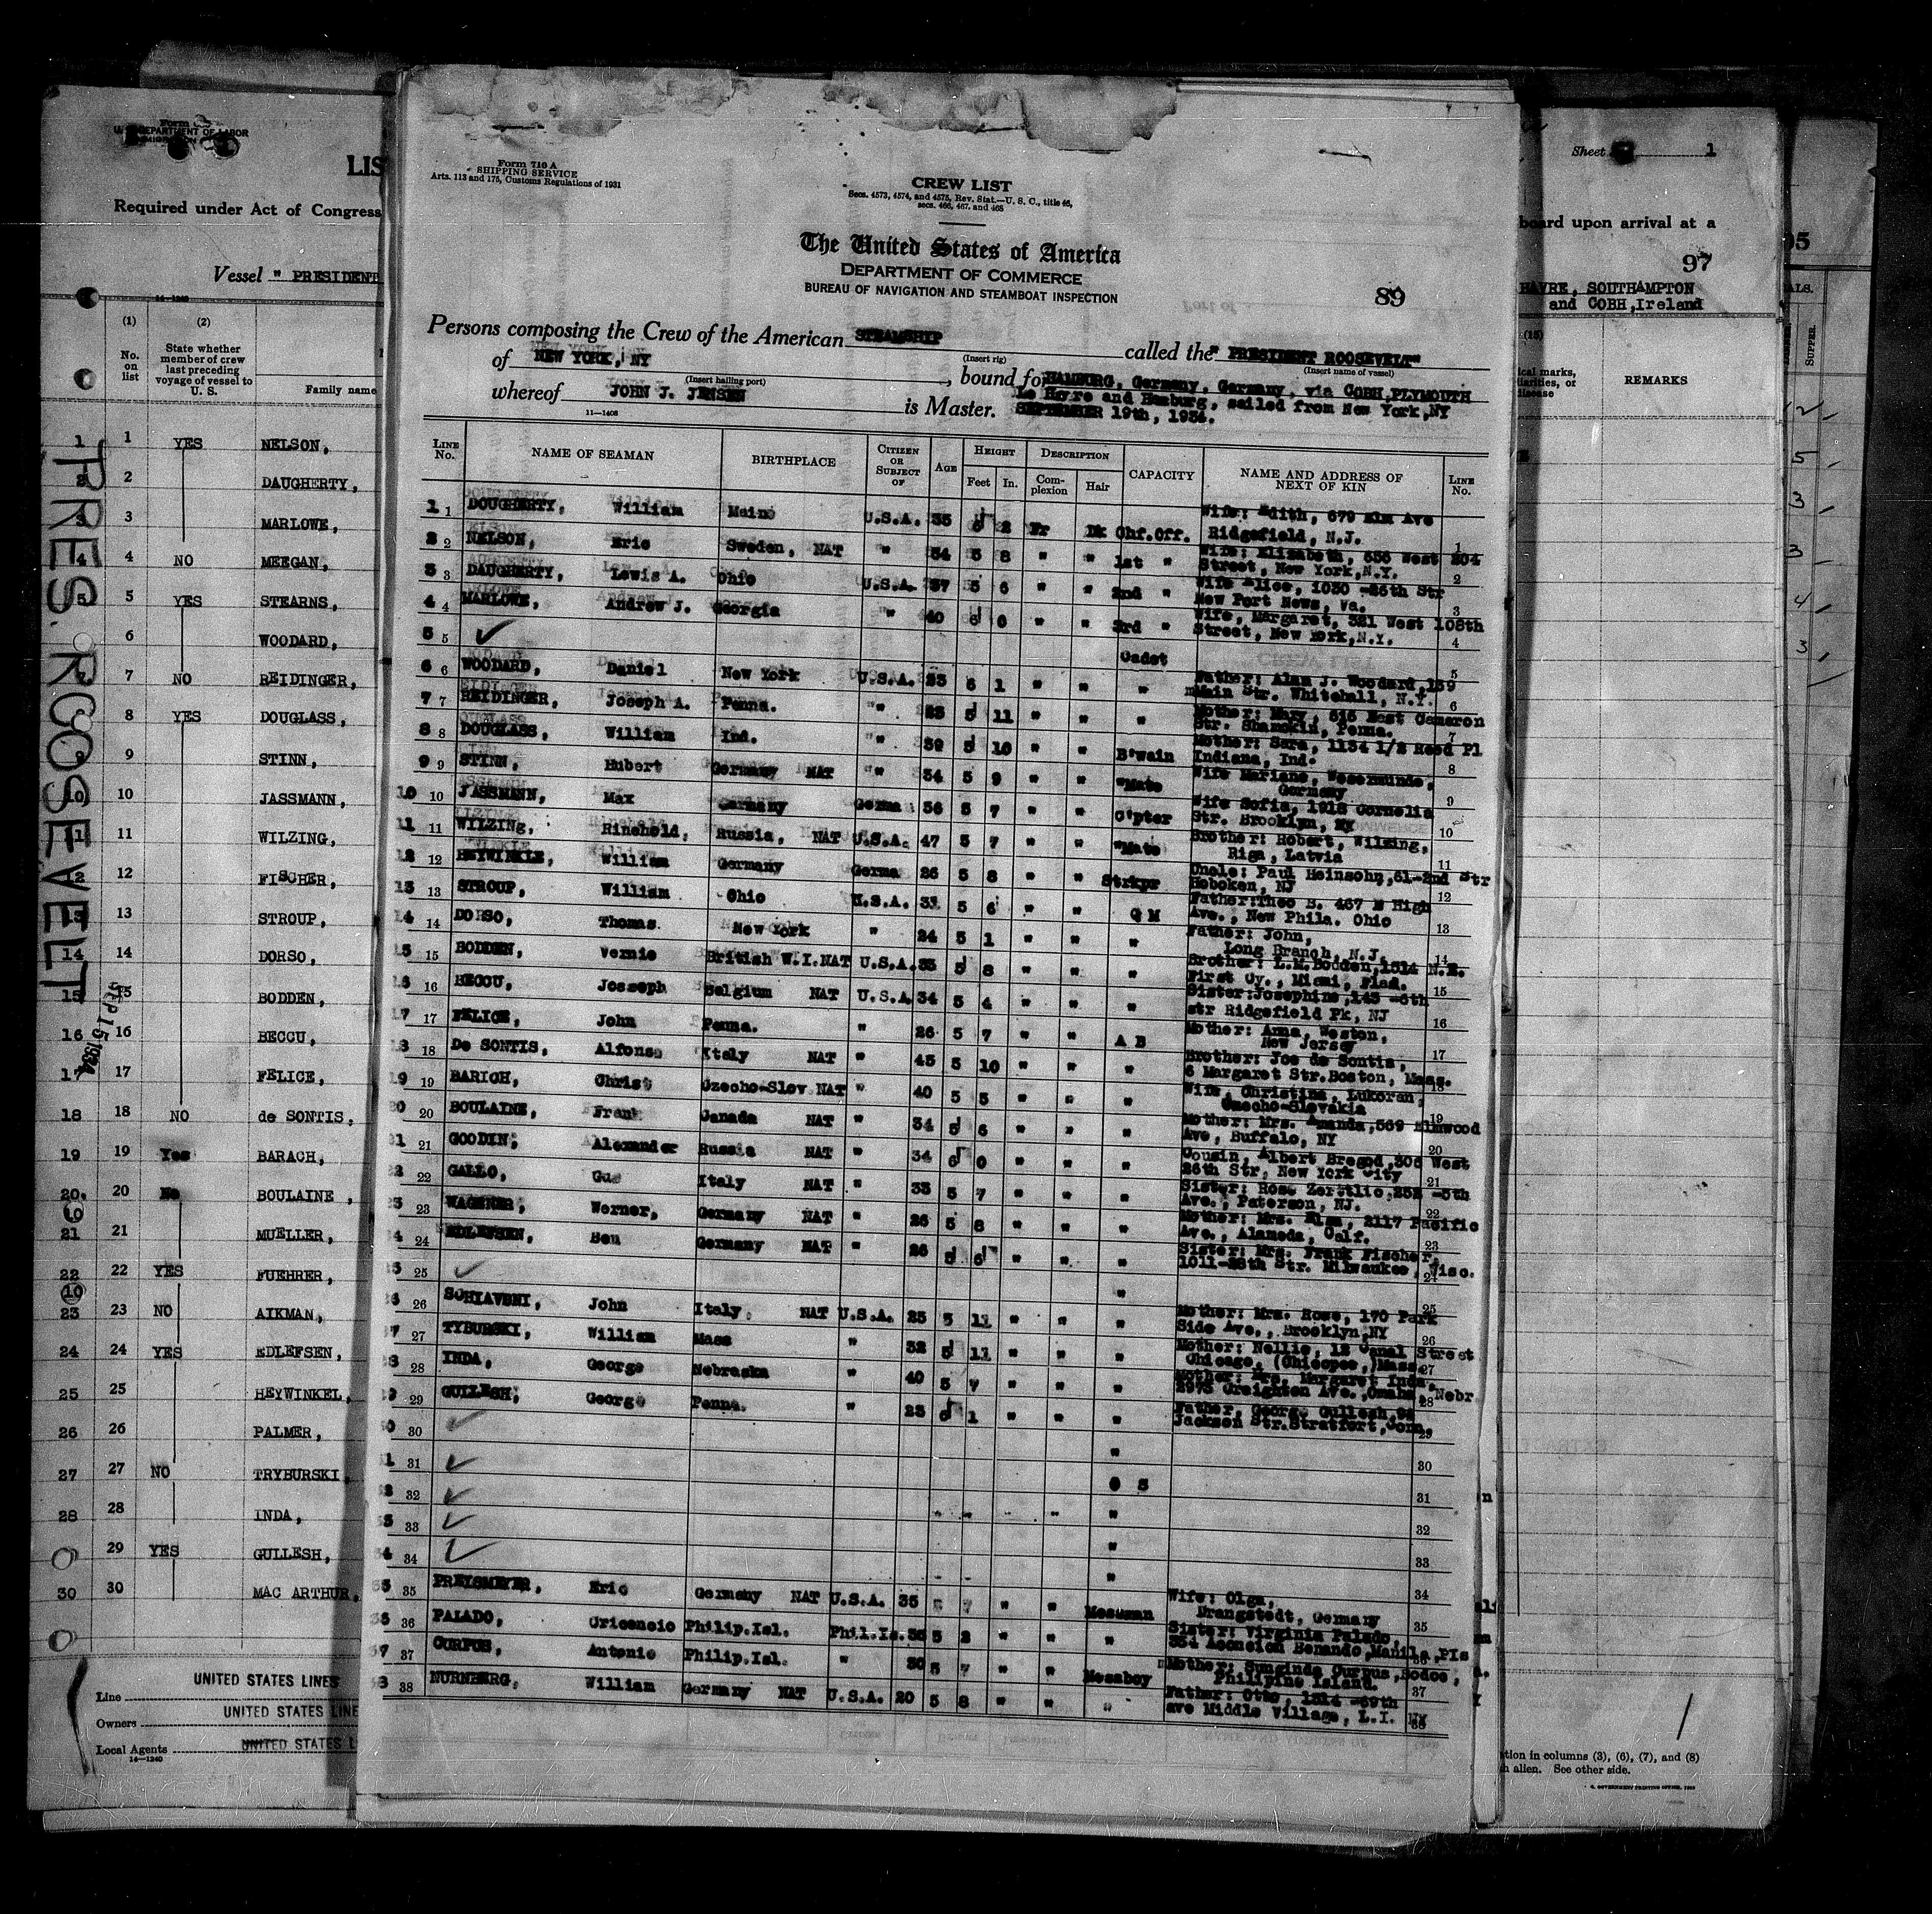 Form
U. S. DEPARTMENT OF LABOR
LIS
Required under Act of Congress
Vessel " PRESIDENT
14-1240
(1) (2)
No. on list
State whether member of crew last preceding voyage of vessel to U. S.
Family name
1 1 YES NELSON,
2 2 DAUGHERTY,
3 3 MARLOWE,
4 4 NO MEEGAN,
5 5 YES STEARNS,
6 WOODARD,
7 NO REIDINGER,
8 YES DOUGLASS,
9 9 STINN,
10 JASSMANN,
11 11 WILZING,
12 12 FISCHER,
13 13 STROUP,
14 14 DORSO,
15 15 BODDEN,
16 16 BECCU,
17 17 FELICE,
18 18 NO de SONTIS,
19 19 Yes BARACH,
20. 20 No BOULAINE ,
21 21 MUELLER,
22 22 YES FUEHRER,
23 23 NO AIKMAN,
24 24 YES EDLEFSEN,
25 25 HEYWINKEL,
26 26 PALMER,
27 27 NO TRYBURSKI,
28 28 INDA,
29 YES GULLESH,
30 30 MAC ARTHUR,
PRES. ROOSEVELT
SEP 15 1934
9
10
UNITED STATES LINES
Line
UNITED STATES LINE
Owners
UNITED STATES L
Local Agents
14-1240
Form 710 A
SHIPPING SERVICE
Arts. 113 and 175, Customs Regulations of 1931
CREW LIST
Secs. 4573, 4574, and 4575, Rev. Stat.—U. S. C., title 46,
secs. 466, 467, and 468
The United States of America
DEPARTMENT OF COMMERCE
BUREAU OF NAVIGATION AND STEAMBOAT INSPECTION
89
Persons composing the Crew of the American STEAMSHIP called the " PRESIDENT ROOSEVELT"
(Insert rig) (Insert name of vessel)
of NEW YORK, NY, bound for HAMBURG, Germany, Germany, via COBH,PLYMOUTH
(Insert hailing port)
Le Havre and Hamburg, sailed from New York,NY
whereof JOHN J. JENSEN is Master. SEPTEMBER 19th, 1934.
11-1408
LINE No. NAME OF SEAMAN BIRTHPLACE CITIZEN OR SUBJECT OF AGE HEIGHT DESCRIPTION CAPACITY NAME AND ADDRESS OF NEXT OF KIN LINE No.
Feet In. Complexion Hair
1 1 DOUGHERTY, William Maine U.S.A. 35 2 Fr Dk Chf.Off. Wife: Edith, 679 Elm Ave
Ridgefield, N.J. 1
2 2 NELSON, Eric Sweden, NAT " 34 5 8 " " 1st " Wife: Elizabeth, 636 West 204
Street, New York,N.Y. 2
3 3 DAUGHERTY, Lewis A. Ohio U.S.A. 37 5 6 " " 2nd " Wife Alice, 1030 -25th Str
New Port News, Va. 3
4 4 MARLOWE, Andrew J. Georgia " 40 0 " " 3rd " Wife, Margaret, 321 West 108th
Street, New York,N.Y. 4
5 5 Cadet 5
6 6 WOODARD, Daniel New York U.S.A. 23 6 1 " " " Father: Alan J. Woodard,139
Main Str. Whitehall, N.Y. 6
7 7 REIDINGER, Joseph A. Penna. " 23 5 11 " " " Mother: Mary, 515 West Cameron
Str. Shamokin, Penna. 7
8 8 DOUGLASS, William Ind. " 39 5 10 " " B'swain Mother: Sara, 1134 1/2 Reed Pl
Indiana, Ind. 8
9 9 STINN, Hubert Germany NAT " 34 5 9 " " "Mate Wife Mariane, Wesermunde,
Germany 9
10 10 JASSMANN, Max Germany Germa 36 5 7 " " C'pter Wife Sofia, 1918 Cornelia
Str. Brooklyn, NY 10
11 11 WILZINg, Rinehold, Russia, NAT U.S.A. 47 5 7 " " "Mate Brother: Robert, Wilzing,
Riga, Latvia 11
12 12 HEYWINKLE, William Germany Germa 26 5 8 " " Strkpr Uncle: Paul Heinsohn,61-2nd Str
Hoboken, NJ 12
13 13 STROUP, William Ohio U.S.A. 31 5 6 " " Q M Father:Theo B. 467 N High
Ave., New Phila. Ohio 13
14 14 DORSO, Thomas New York " 24 5 1 " " " Father: John,
Long Branch, N.J. 14
15 15 BODDEN, Vernie British W.I.NAT U.S.A. 35 5 8 " " " Brother: L.M.Bodden,1514 N.E.
First Cy., Miami, Flad. 15
16 16 BECCU, Josseph Belgium NAT U.S.A 34 5 4 " " " Sister:Josephine,143 -6th
str Ridgefield Pk, NJ 16
17 17 FELICE, John Penna. " 26 5 7 " " A B Mother: Anna, Weston,
New Jersey 17
18 18 De SONTIS, Alfonso Italy NAT " 45 5 10 " " " Brother: Joe de Sontis,
6 Margaret Str.Boston, Mass. 18
19 19 BARICH, Christ Czecho-Slov NAT " 40 5 5 " " " Wife, Christina, Lukoran,
Czecho-Slovakia 19
20 20 BOULAINE, Frank Canada NAT " 34 5 6 " " " Mother: Mrs. Amanda,569 Elmwood
Ave, Buffalo, NY 20
21 21 GOODIN, Alexander Russia NAT " 34 6 0 " " " Cousin, Albert Bregod,306 West
26th Str, New York City 21
22 22 GALLO, Gus Italy NAT " 33 5 7 " " " Sister: Rose -5th
Ave., Paterson, NJ. 22
23 23 WAGENER, Werner, Germany NAT " 26 5 8 " " " Mother: Mrs. Elsa, 2117 Pacific
Ave., Alameda, Calf. 23
24 24 EDLEFSEN, Ben Germany NAT " 26 5 6 " " " Sister: Mrs. Frank Fischer,
1011-28th Str. Milwaukee, Wisc. 24
25 25 " 25
26 26 SCHIAVENI, John Italy, NAT U.S.A. 25 5 11 " " " Mother: Mrs. Rose, 170 Park
Side Ave., Brooklyn,NY 26
27 27 TYBURSKI, William Mass " 32 5 11 " " " Mother: Nellie, 12 Canal Street
Chicago, (Chicopee,)Mass. 27
28 28 INDA, George Nebraska " 40 5 7 " " " Mother: Mrs. Margaret Inda,
2973 Creighton Ave.,Omaha, Nebr 28
29 29 GULLESH, George Penna. " 23 6 1 " " " Father, George Gullesh,
Jackson Str.Stratfort,Conn. 29
30 30 " 30
31 31 O S 31
32 32 " 32
33 33 " 33
34 34 " 34
35 35 PREISMEYER, Eric Germany NAT U.S.A. 35 7 " " Messman Wife: Olga,
Drangstedt, Germany 35
36 36 PALADO, Cricencio Philip.Isl. Phil.Is. 36 5 2 " " " Sister: Virginia Palado,
354 Acencion Benando,Manila,PIs
37 37 CURPUS, Antonio Philip.Isl. " 30 5 7 " " Messboy Mother: Curpus,
Philipine Island. 37
38 38 NURNBERG, William Germany NAT U.S.A. 20 5 8 " " " Father: Otto, 1514 -69th
ave Middle Village, L.I. NY 38
Sheet 1
board upon arrival at a
97
HAVRE, SOUTHAMPTON
and COBH,Ireland
(15)
REMARKS
SUPPER
tion in columns (3), (6), (7), and (8)
alien. See other side.